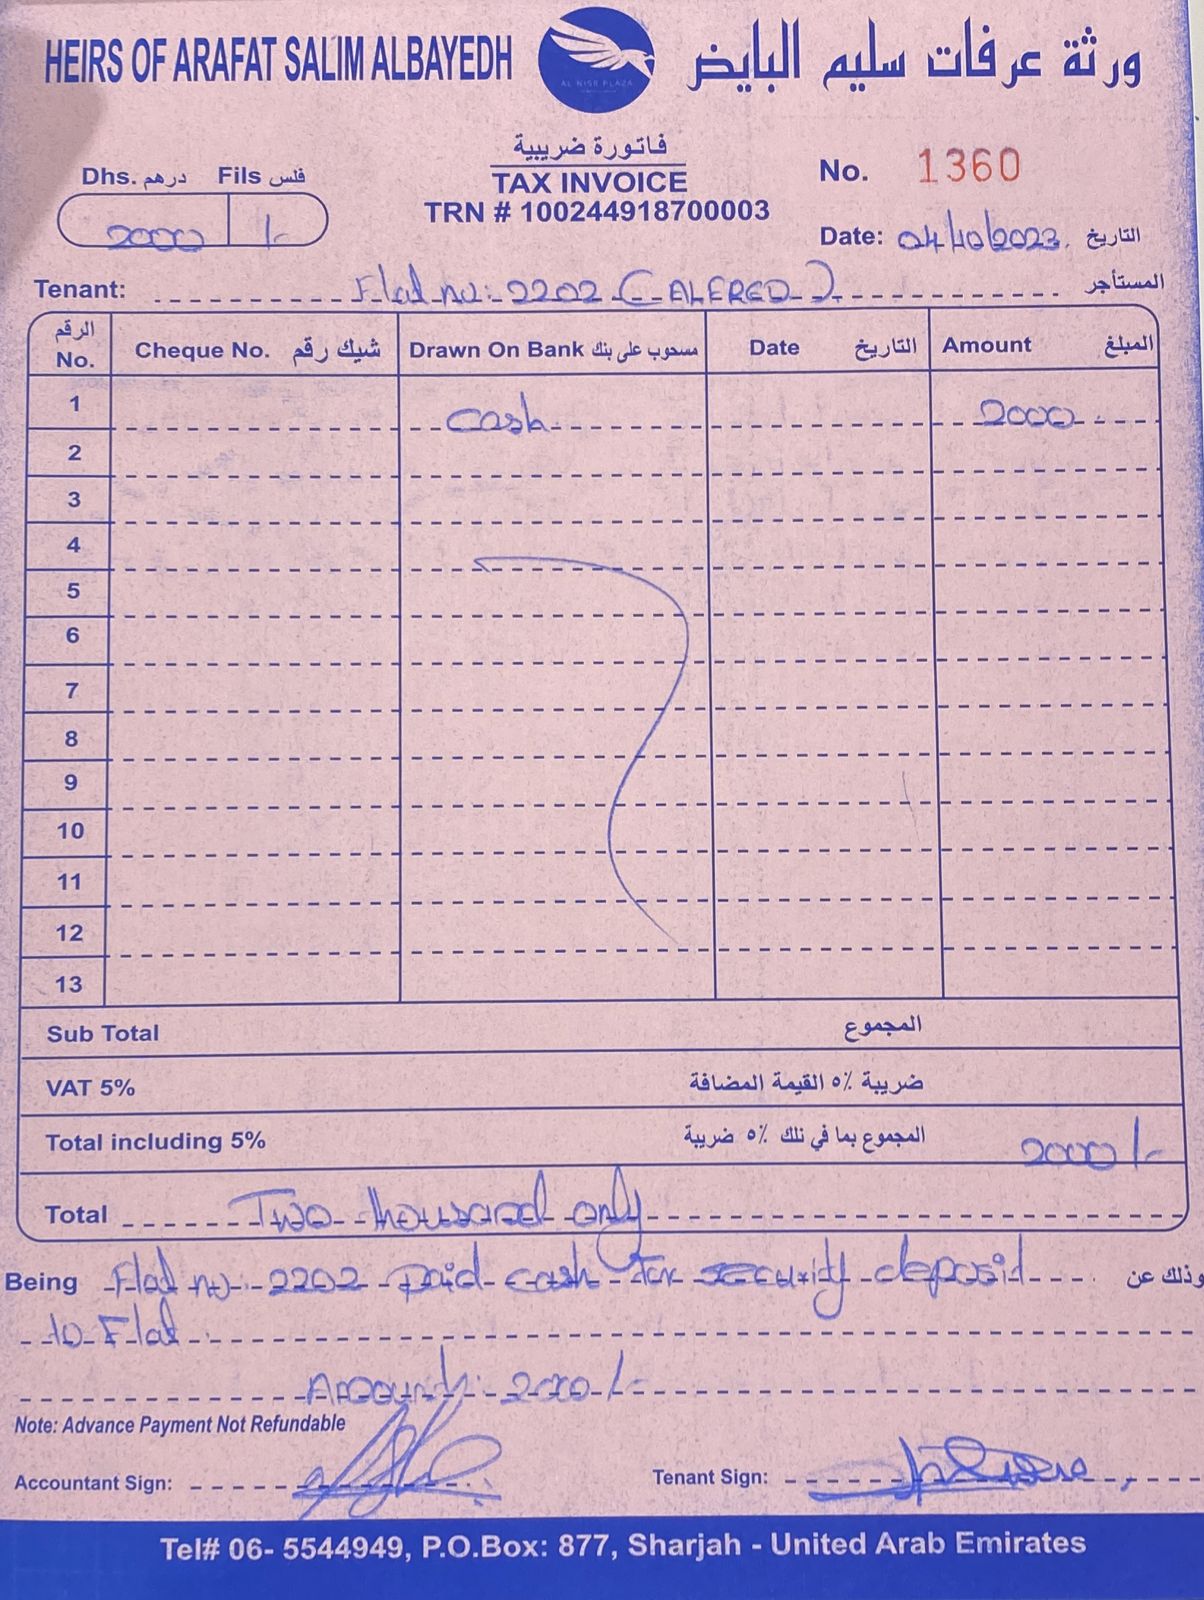 HEIRS OF ARAFAT SALIM ALBAYEDH
AL NISR PLAZA
ورثة عرفات سليم البايض
فاتورة ضريبية
TAX INVOICE
TRN # 100244918700003
No. 1360
Dhs. درهم Fils فلس
2000 /-
Date: 04/10/2023. التاريخ
Tenant: Flat no: 2202 (ALFRED) المستأجر
الرقم No. Cheque No. شيك رقم Drawn On Bank مسحوب على بنك Date التاريخ Amount المبلغ
1 Cash 2000
2
3
4
5
6
7
8
9
10
11
12
13
Sub Total المجموع
VAT 5% ضريبة ٥٪ القيمة المضافة
Total including 5% المجموع بما في نلك ٥٪ ضريبة 2000/-
Total Two thousand only
Being Flat no: 2202 paid cash for security deposit وذلك عن
to Flat.
Amount: 2000/-
Note: Advance Payment Not Refundable
Accountant Sign:
Tenant Sign:
Tel# 06- 5544949, P.O.Box: 877, Sharjah - United Arab Emirates